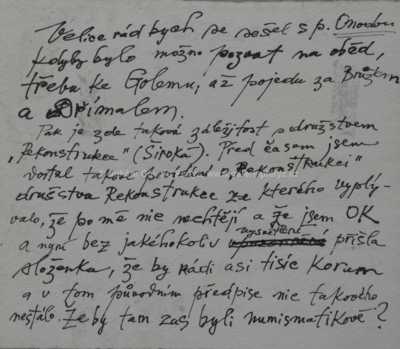 Velice rád bych se sešel s p. Onodou
kdyby bylo možno pozvat na oběd,
třeba ke Golemu, až pojedu za Brůžkem
a Dřímalem.
Pak je zde taková záležitost s družstvem
„Rekonstrukce" (Široká). Před časem jsem
dostal takové povídání o „Rekonštrukci"
družstva Rekonstrukce ze kterého vyplý-
valo, že po mě nic nechtějí a že jsem OK
a nyní bez jakéhokoliv vysvětlení přišla
složenka, že by rádi asi tisíc korun
a v tom původním předpise nic takového
nestálo. Že by tam zas byli numismatikové?